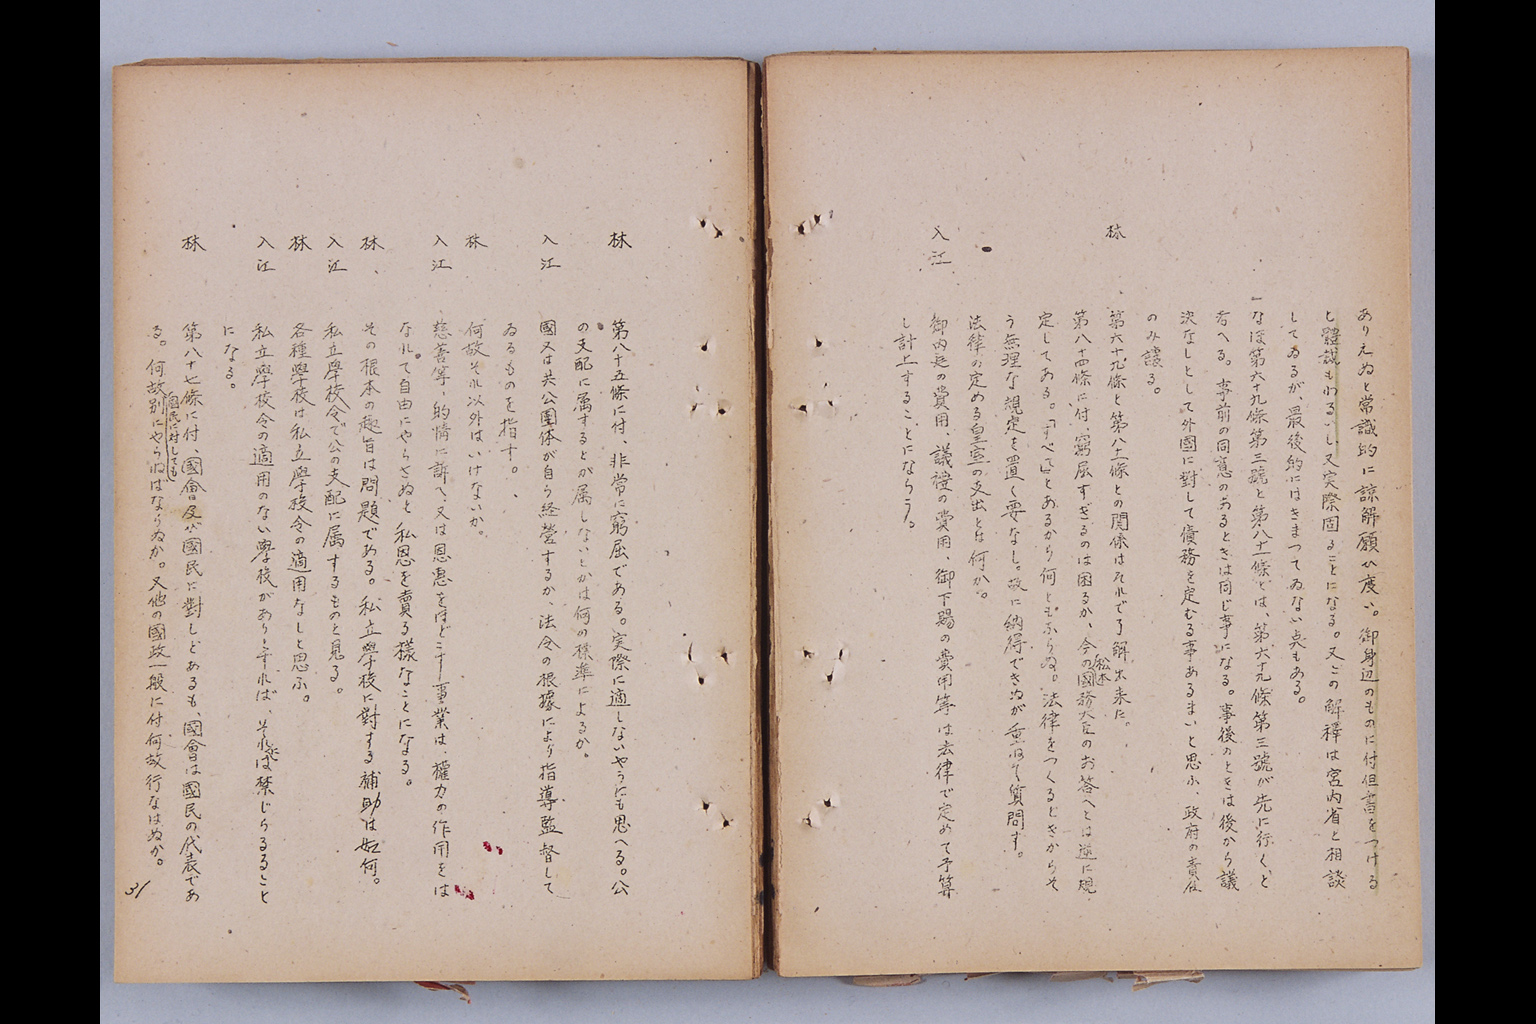 ありえぬと常識的に諒解願ひ度い。御身辺のものに付但書をつける
と體裁もわるいし、又実際困ることになる。又この解釋は宮内省と相談
してゐるが、最後的にはきまつてゐない点もある。
なほ第六十九條第三號と第八十一條とは、第六十九條第三號が先に行くと
考へる。事前の同意のあるときは同じ事になる。事後のときは後から議
決なしとして外國に對して債務を定むる事あるまいと思ふ、政府の責任
のみ譲る。
林 第六十九條と第八十一條との関係はそれで了解出来た。
第八十四條に付、窮屈すぎるのは困るか、今の松本國務大臣のお答へとは逆に規
定してある。「すべて」とあるから何ともならぬ。法律をつくるときからそ
う無理な規定を置く要なし。故に納得できぬが重ねて質問す。
法律の定める皇室の支出とは何か。
入江 御内廷の費用、議禮の費用、御下賜の費用等は法律で定めて予算
し計上することにならう。
林 第八十五條に付、非常に窮屈である。実際に適しないやうにも思へる。公
の支配に属するとか属しないとかは何の標準によるか。
入江 國又は共公團体が自ら経營するか、法令の根據により指導監督して
ゐるものを指す。
林 何故それ以外はいけないか。
入江 慈善等、的情に訴へ、又は恩惠をほどこす事業は、權力の作用をは
なれて自由にやらさぬと私恩を賣る樣なことになる。
林、 その根本の趣旨は問題である。私立學校に對する補助は如何。
入江 私立學校令で公の支配に属するものと見る。
林 各種學校は私立學校令の適用なしと思ふ。
入江 私立學校令の適用のない學校がありとすれば、それには禁じらるること
になる。
林 第八十七條に付、國會及び國民に對しとあるも、國會は國民の代表であ
る。何故別に國民に対してもやらねばならぬか。又他の國政一般に付何故行なはぬか。
31